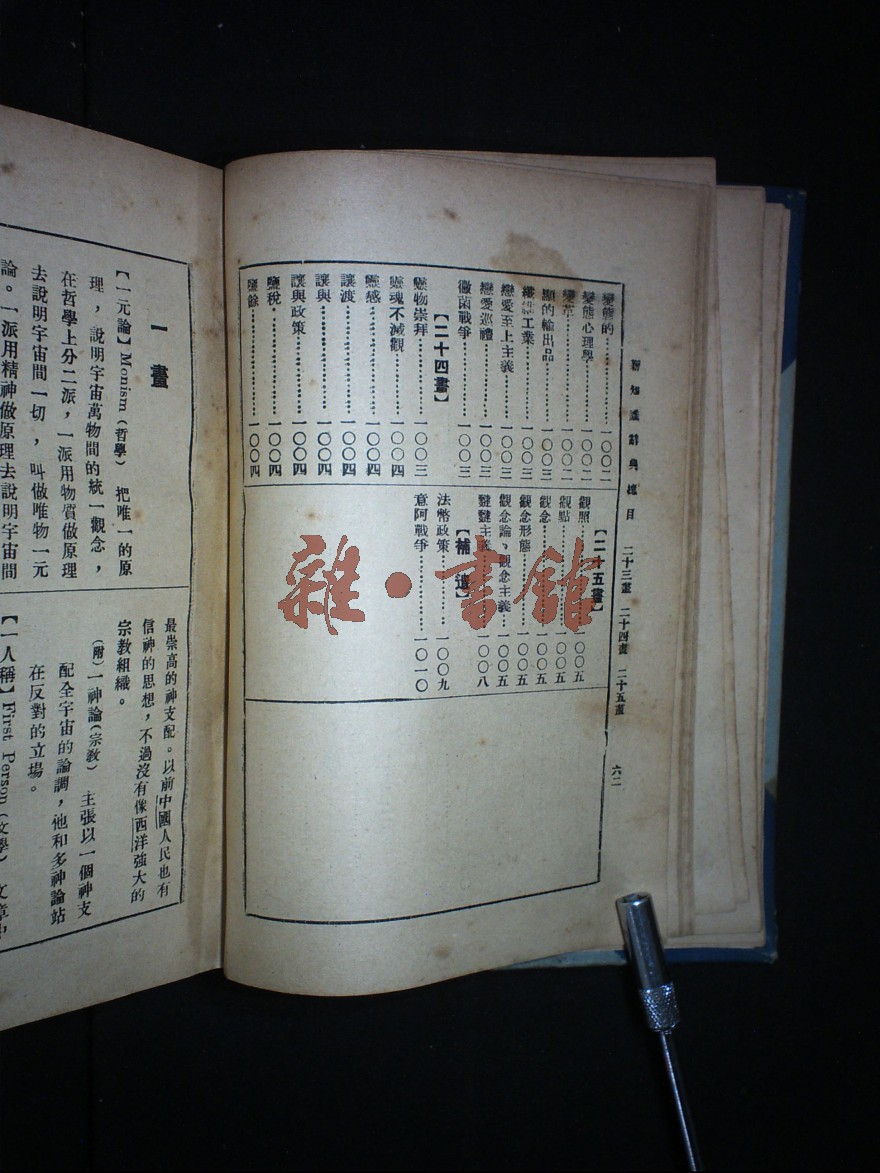 新知識辭典總目　二十三畫　二十四畫　二十五畫　六二
變態的………一〇〇二
變態心理學………一〇〇二
變革………一〇〇二
顯的輸出品………一〇〇三
纖維工業………一〇〇三
戀愛至上主義………一〇〇三
戀愛巡禮………一〇〇三
黴菌戰爭………一〇〇三
【二十四畫】
靈物崇拜………一〇〇三
靈魂不滅觀………一〇〇四
靈感………一〇〇四
讓渡………一〇〇四
讓與………一〇〇四
讓與政策………一〇〇四
鹽稅………一〇〇四
鹽餘………一〇〇四
【二十五畫】
觀照………一〇〇五
觀點………一〇〇五
觀念………一〇〇五
觀念形態………一〇〇五
觀念論，觀念主義………一〇〇五
主義………一〇〇八
【補遺】
法幣政策………一〇〇九
意阿戰爭………一〇一〇
雜·書館
一畫
【一元論】Monism（哲學）　把唯一的原
理，說明宇宙萬物間的統一觀念，
在哲學上分二派，一派用物質做原理
去說明宇宙間一切，叫做唯物一元
論。一派用精神做原理去說明宇宙間
最崇高的神支配。以前中國人民也有
信神的思想，不過沒有像西洋強大的
宗教組織。
（附）一神論（宗教）　主張以一個神支
配全宇宙的論調，他和多神論站
在反對的立場。
【一人稱】First Person（文學）　文章中